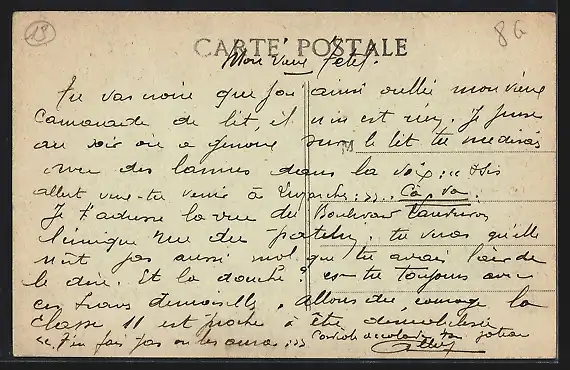 13
86
CARTE POSTALE
Mon vieux
Tu vas croire que j'ai ainsi oublié mon vieux
camarade de lit, il n'en est rien. Je pense
au soir où à genoux sur le lit tu me disais
avec des larmes dans la voix: «
allut veux-tu venir à ». Ça va.
Je t'adresse la vue du Boulevard
l'unique rue du patelin, tu verras qu'elle
n'est pas aussi mal que tu avais l'air de
le dire. Et la douche? es-tu toujours avec
ces trois demoiselles. Allons du courage la
classe 11 est proche à être démobilisée
«T'en fais pas on les aura»